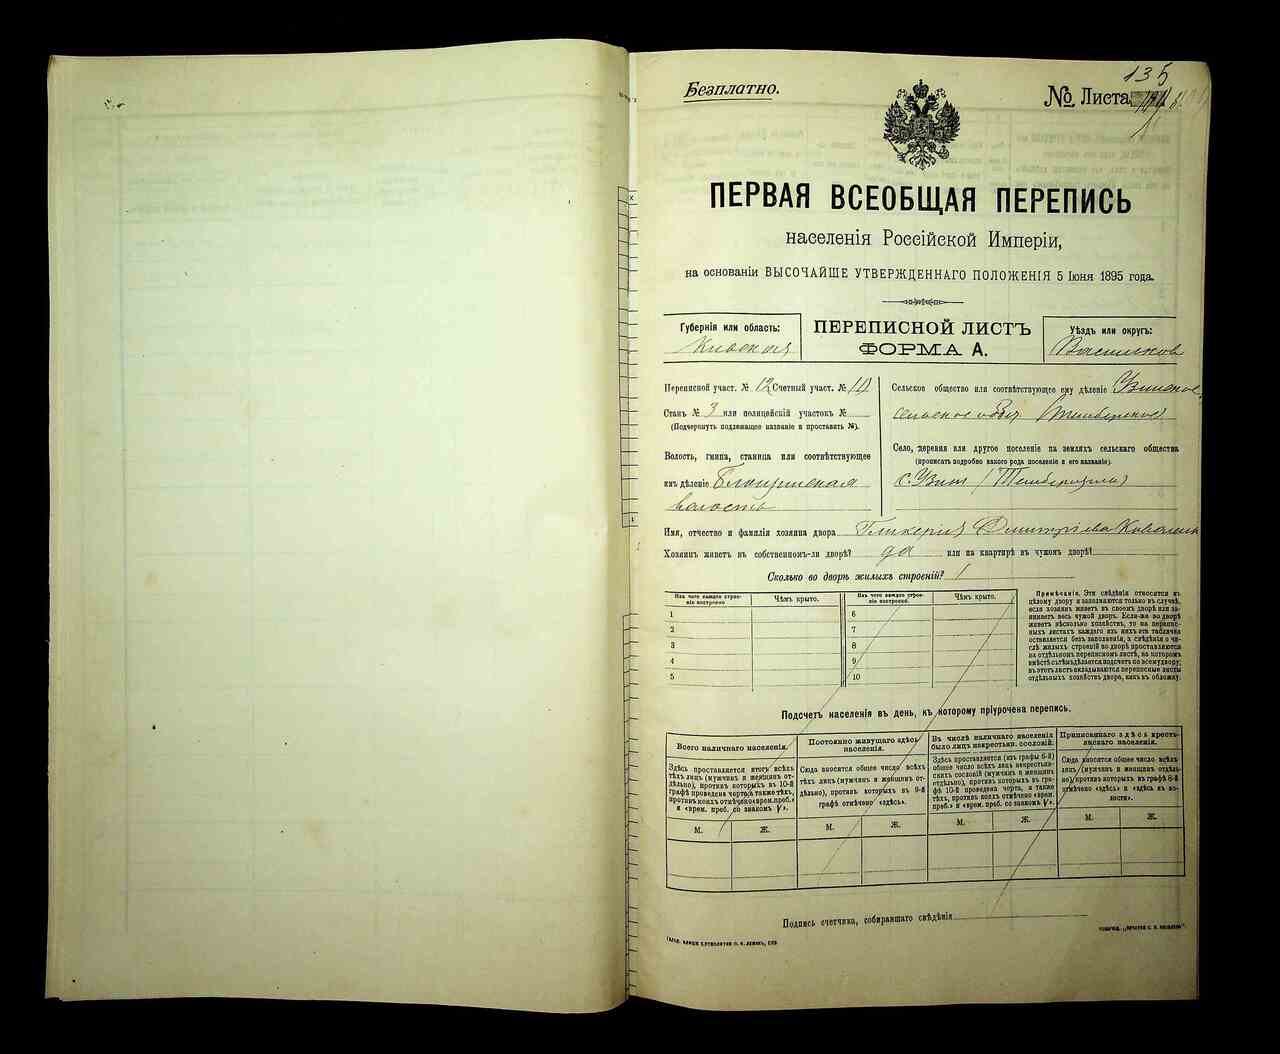 135
Безплатно.
№ Листа
ПЕРВАЯ ВСЕОБЩАЯ ПЕРЕПИСЬ
населенія Россійской Имперіи,
на основаніи ВЫСОЧАЙШЕ УТВЕРЖДЕННАГО ПОЛОЖЕНІЯ 5 Іюня 1895 года.
Губернія или область:
Киевская
ПЕРЕПИСНОЙ ЛИСТЪ
ФОРМА А.
Уѣздъ или округъ:
Васильков
Переписной участ. № 12 Счетный участ. №
Станъ № 3 или полицейскій участокъ №
(Подчеркнуть подлежащее названіе и проставить №).
Волость, гмина, станица или соотвѣтствующее
имъ дѣленіе
волость
Сельское общество или соотвѣтствующее ему дѣленіе
сельское
Село, деревня или другое поселеніе на земляхъ сельскаго общества
(прописать подробно какого рода поселеніе и его названіе).
с. Узин
Имя, отчество и фамилія хозяина двора Гликерия Дмитриева
Хозяинъ живетъ въ собственномъ-ли дворѣ? да или на квартирѣ въ чужомъ дворѣ?
Сколько во дворѣ жилыхъ строеній? 1
Изъ чего каждое строеніе построено
Чѣмъ крыто.
Изъ чего каждое строеніе построено.
Чѣмъ крыто.
1 6
2 7
3 8
4 9
5 10
Примѣчаніе. Эти свѣдѣнія относятся къ
цѣлому двору и заполняются только въ случаѣ,
если хозяинъ живетъ въ своемъ дворѣ или занимаетъ
весь чужой дворъ. Если-же во дворѣ
живетъ нѣсколько хозяйствъ, то на переписныхъ
листахъ каждаго изъ нихъ эта табличка
оставляется безъ заполненія, а свѣдѣнія о числѣ
жилыхъ строеній во дворѣ проставляются
на отдѣльномъ переписномъ листѣ, на которомъ
вмѣстѣ съ тѣмъ дѣлается подсчетъ по всему двору;
въ этотъ листъ вкладываются переписные листы
отдѣльныхъ хозяйствъ двора, какъ въ обложку.
Подсчетъ населенія въ день, къ которому пріурочена перепись.
Всего наличнаго населенія.
Здѣсь проставляется итогъ всѣхъ
тѣхъ лицъ (мужчинъ и женщинъ отдѣльно),
противъ которыхъ въ 10-й
графѣ проведена черта, а также тѣхъ,
противъ коихъ отмѣчено «врем. преб.»
и «врем. преб. со знакомъ V».
Постоянно живущаго здѣсь
населенія.
Сюда вносится общее число всѣхъ
тѣхъ лицъ (мужчинъ и женщинъ отдѣльно),
противъ которыхъ въ 9-й
графѣ отмѣчено «здѣсь».
Въ числѣ наличнаго населенія
было лицъ некрестьян. сословій.
Здѣсь проставляется (изъ графы 6-й)
общее число всѣхъ лицъ некрестьянскихъ
сословій (мужчинъ и женщинъ
отдѣльно), противъ которыхъ въ графѣ
10-й проведена черта, а также
тѣхъ, противъ коихъ отмѣчено «врем.
преб.» и «врем. преб. со знакомъ V».
Приписаннаго здѣсь крестьянскаго
населенія.
Сюда вносится общее число всѣхъ
лицъ (мужчинъ и женщинъ отдѣльно),
противъ которыхъ въ графѣ 8-й
отмѣчено «здѣсь» и «здѣсь въ волости».
М. Ж. М. Ж. М. Ж. М. Ж.
Подпись счетчика, собиравшаго свѣдѣнія